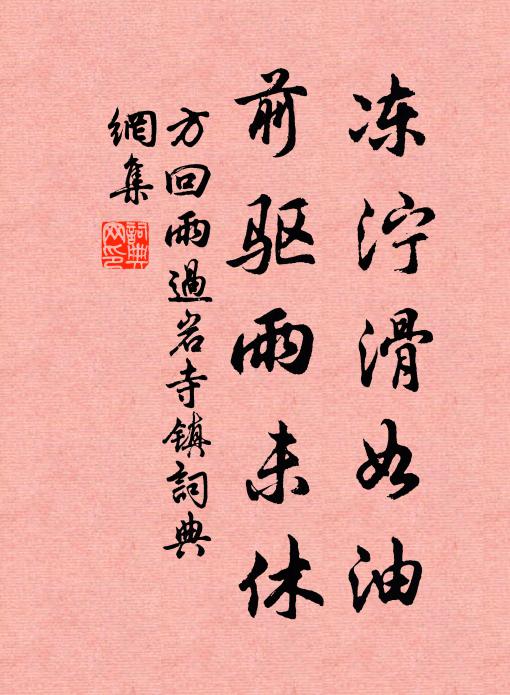 冻泞滑如油
前驱雨未休
方回雨過岩寺镇詞典
網集
詞典
网印